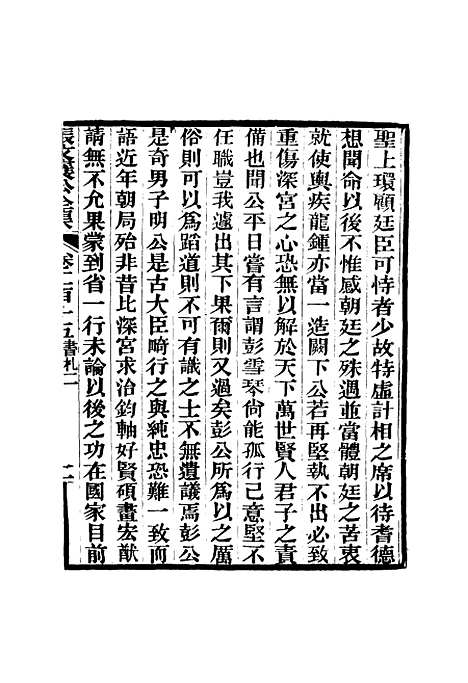 聖上環顧廷臣可恃者少故特虛計相之席以待耆德
想聞命以後不惟感朝廷之殊遇並當體朝廷之苦衷
就使輿疾龍鍾亦當一造闕下公若再堅執不出必致
重傷深宮之心恐無以解於天下萬世賢人君子之責
備也聞公平日嘗有言謂彭雪琴尙能孤行己意堅不
任職豈我遽出其下果爾則又過矣彭公所爲以之厲
俗則可以爲蹈道則不可有識之士不無遺議焉彭公
是奇男子明公是古大臣畸行之與純忠恐難一致而
語近年朝局殆非昔比深宮求治鈞軸好賢碩畫宏猷
請無不允果蒙到省一行未論以後之功在國家目前
張文襄公全集 卷二百十五 書札二 十一